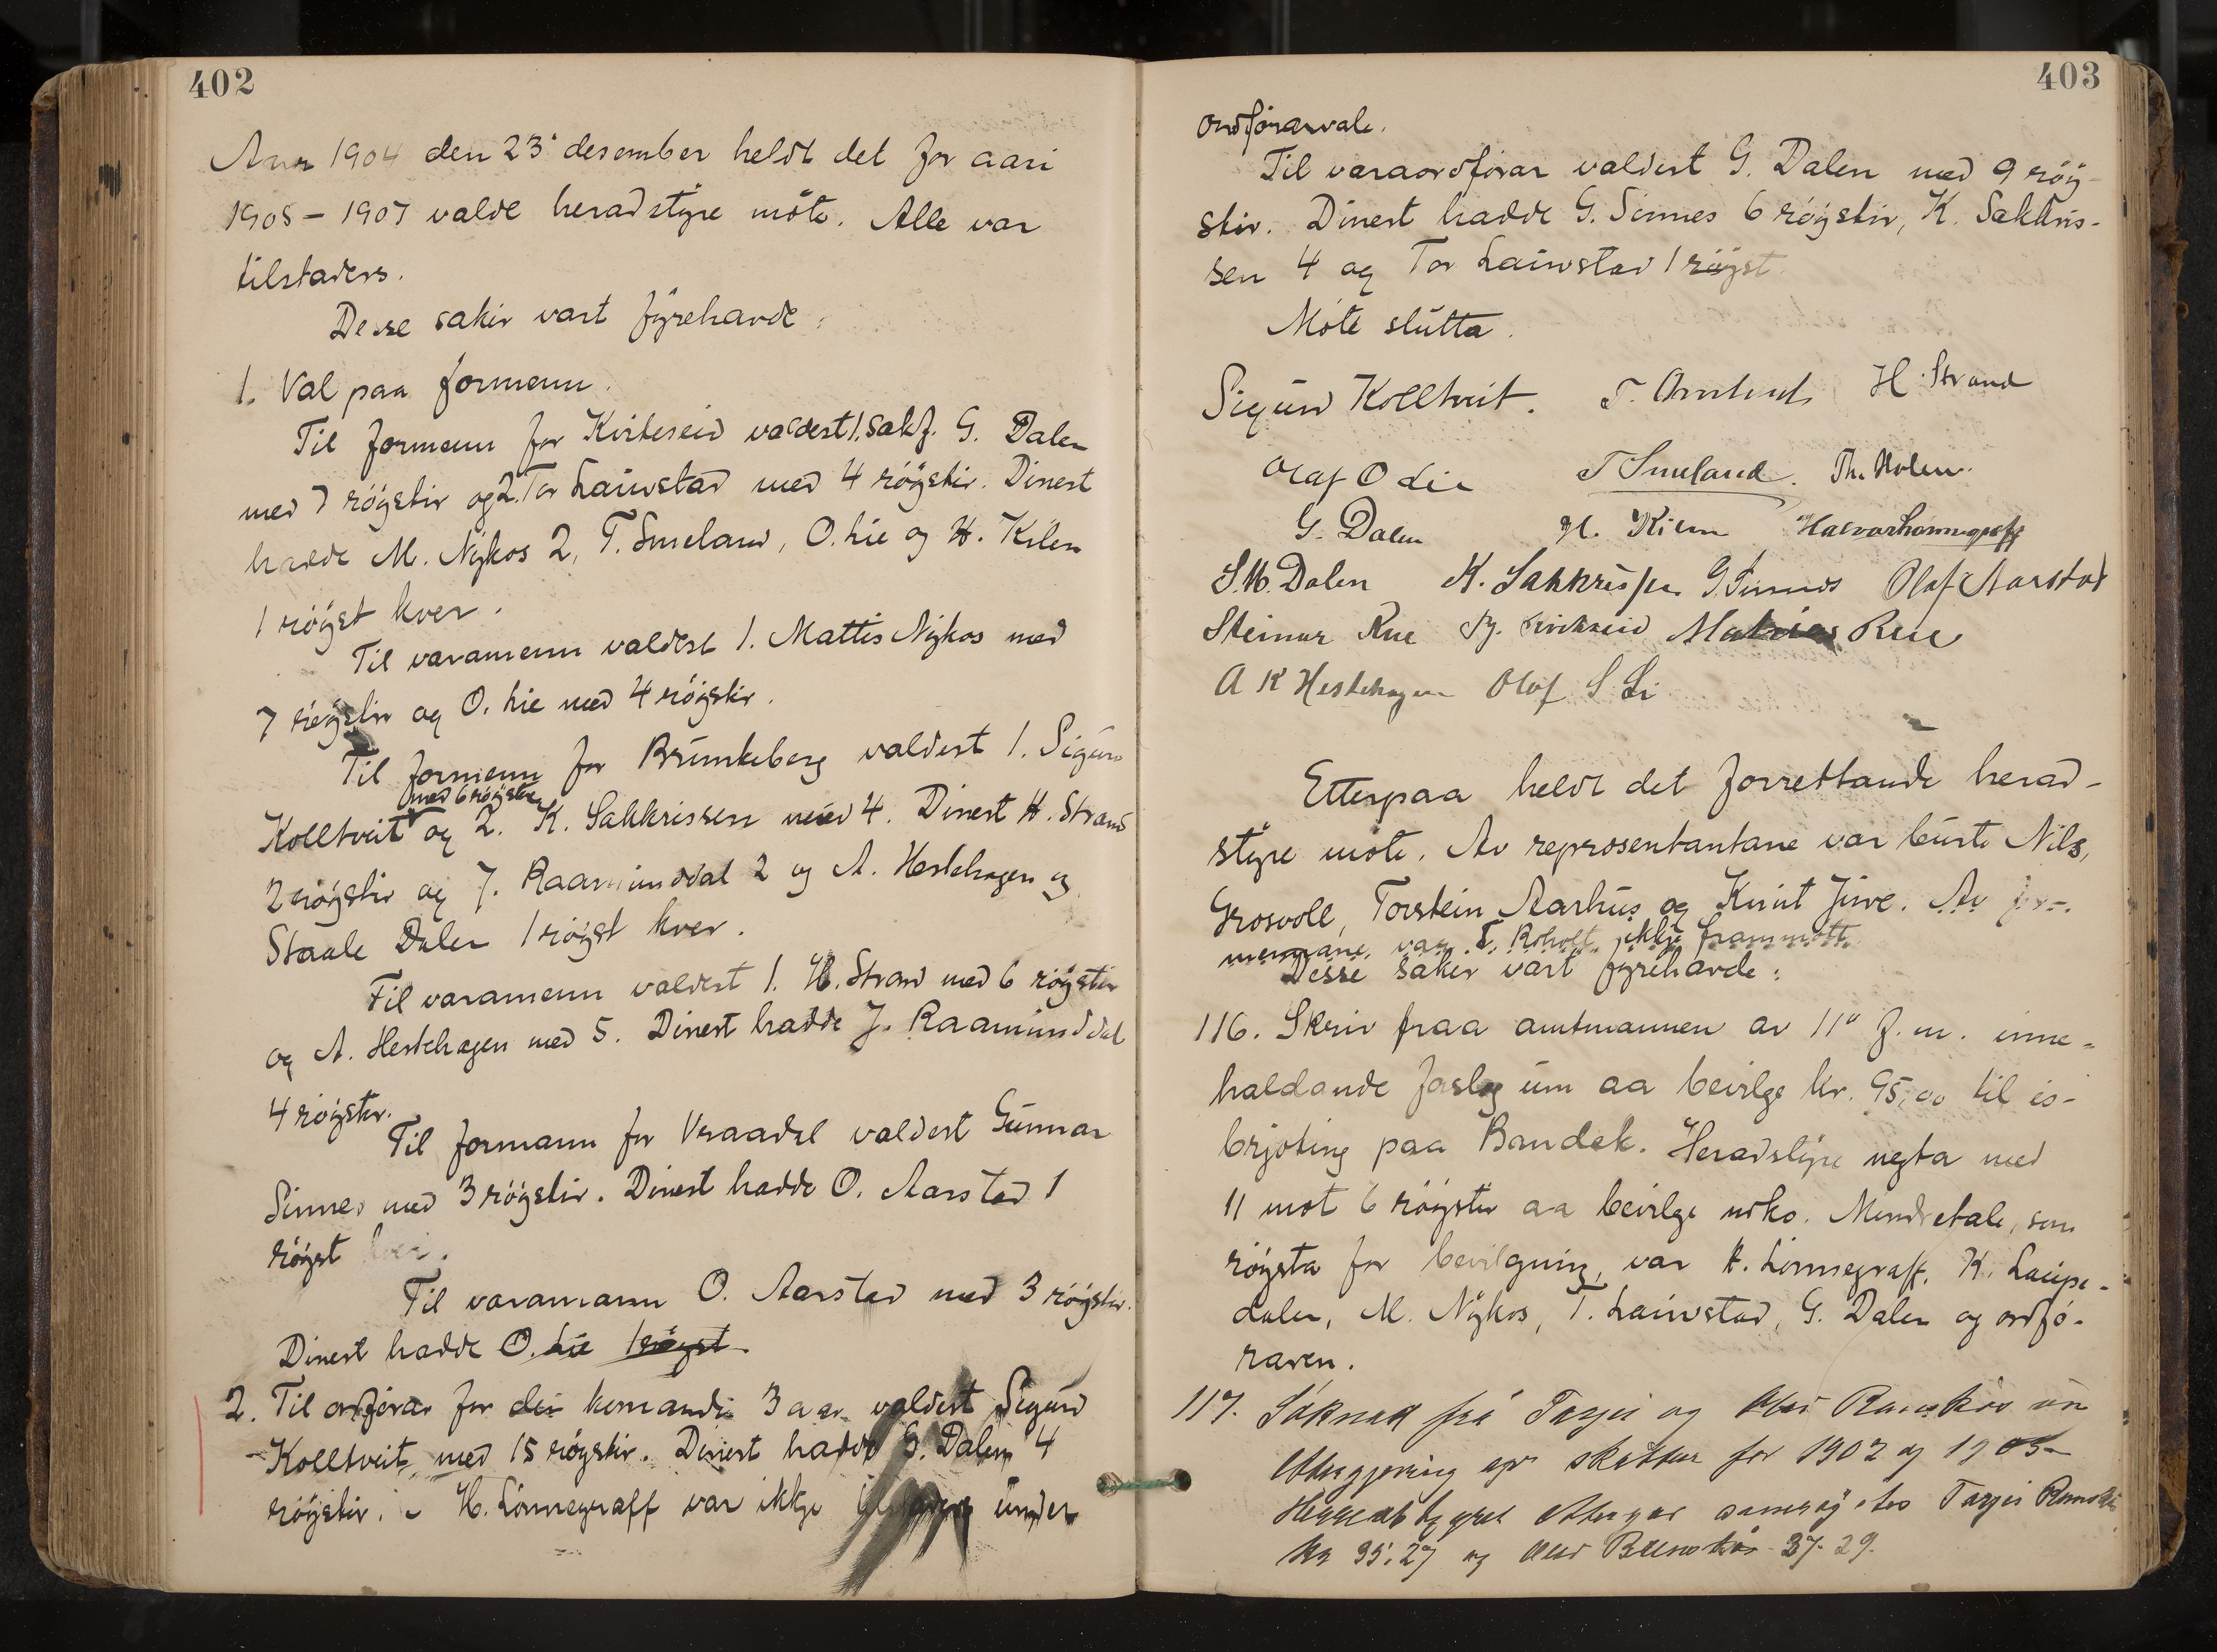 402
Aar 1904 den 23' desember heldt det for aari
1905 – 1907 valde heradstyre möte. Alle var
tilstaders.
Desse sakir vart fyrehavde:
1. Val paa formenn.
Til formenn for Kviteseid valdest 1. sakf. G. Dalen
med 7 röystir og 2. Tor Lauvstad med 4 röystir. Dinest
hadde M. Nykos 2, T. Smeland, O. Lie og H. Kilen
1 röyst kver.
Til varamenn valdest 1. Mattis Nykos med
7 röystir og O. Lie med 4 röystir.
Til formenn for Brunkeberg valdest 1. Sigurd
med 6 röystir
Kolltveit og 2. K. Sakkrissen med 4. Dinest H. Strand
2 röystir og J. Raamunddal 2 og A. Hestehagen og
Staale Dalen 1 röyst kver.
Til varamenn valdest 1. H. Strand med 6 röystir
og A. Hestehagen med 5. Dinest hadde J. Raamunddal
4 röystir.
Til formann for Vraadal valdest Gunnar
Sinnes med 3 röystir. Dinest hadde O. Aarstad 1
röyst kver.
Til varamann O. Aarstad med 3 röystir.
Dinest hadde O. Lie 1 röyst.
2. Til ordförar for dei komande 3 aar valdest Sigurd
Kolltveit med 15 röystir. Dinest hadde G. Dalen 4
röystir. – H. Lönnegraff var ikkje under
403
ordförarvale.
Til varaordförar valdest G. Dalen med 9 röy-
stir. Dinest hadde G. Sinnes 6 röystir, K. Sakkris-
sen 4 og Tor Lauvstad 1 röyst.
Möte slutta.
Sigurd Kolltveit. T. Omlid H. Strand
Olaf O Lie T Smeland. Th. Holen.
G. Dalen H. Kilen Halvor Lönnegraff
S. M. Dalen K. Sakkrissen G. Sinnes Olaf Aarstad
Steinar Rue Kviteseid Matias Rue
A K Hestehagen Olaf S Li
Etterpaa heldt det forrettande herad-
styre möte. Av representantane var burte Nils
Grosvoll, Torstein Aarhus og Knut Juve. Av for-
mennane var T. Roholt ikkje frammött.
Desse saker vart fyrehavde:
116. Skriv fraa amtmannen av 11' f. m. inne-
haldande forslag um aa bevilge kr. 95,00 til is-
brjoting paa Bandak. Heradstyre negta med
11 mot 6 röystir aa bevilge noko. Mindretale, som
röysta for bevilgning, var H. Lönnegraff, K. Laupe-
dalen, M. Nykos, T. Lauvstad, G. Dalen og ordfö-
raren.
117. Söknad frå Tarjei og Olav Ramskår um
ettergjeving av skattar for 1902 og 1903
Heradstyret ettergav samröystes Tarjei Ramskår
kr 35.27 og Olav Ramskår 37.29.